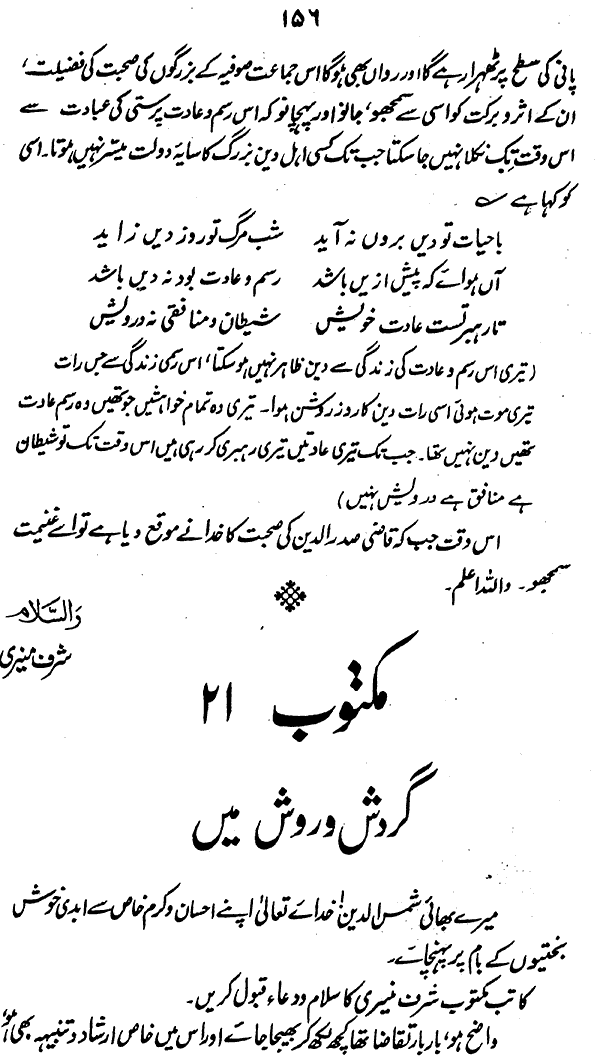 ۱۵۶
پانی کی سطح پر ٹھہرا رہے گا اور رواں بھی ہوگا اس جماعت صوفیہ کے بزرگوں کی صحبت کی فضیلت،
ان کے اثر و برکت کو اسی سے سمجھو، جانو اور پہچانو کہ اس رسم و عادت پرستی کی عبادت سے
اس وقت تک نکلا نہیں جا سکتا جب تک کسی اہل دین بزرگ کا سایۂ دولت میسر نہیں ہوتا۔ اسی
کو کہا ہے ؎
باحیات تو دیں بروں نہ آید شب مرگ تو روز دیں زاید
آں ہوائے کہ پیش ازیں باشد رسم و عادت بود نہ دیں باشد
تا رہبر تست عادت خویش شیطان و منافقی نہ درویش
(تیری اس رسم و عادت کی زندگی سے دین ظاہر نہیں ہو سکتا، اس رسمی زندگی سے جس رات
تیری موت ہوئی اسی رات دین کا روز روشن ہوا۔ تیری وہ تمام خواہشیں جو تھیں وہ رسم عادت
تھیں دین نہیں تھا۔ جب تک تیری عادتیں تیری رہبری کر رہی ہیں اس وقت تک تو شیطان
ہے منافق ہے درویش نہیں)
اس وقت جب کہ قاضی صدر الدین کی صحبت کا خدا نے موقع دیا ہے تو اسے غنیمت
سمجھو۔ واللہ اعلم۔
والسَّلام
شرف منیری
مکتوب ۲۱
گردش و روش میں
میرے بھائی شمس الدین! خدائے تعالیٰ اپنے احسان و کرم خاص سے ابدی خوش
بختیوں کے بام پر پہنچائے۔
کاتب مکتوب شرف منیری کا سلام و دعاء قبول کریں۔
واضح ہو، بار بار تقاضا تھا کچھ لکھ کر بھیجا جائے اور اس میں خاص ارشاد و تنبیہہ بھی